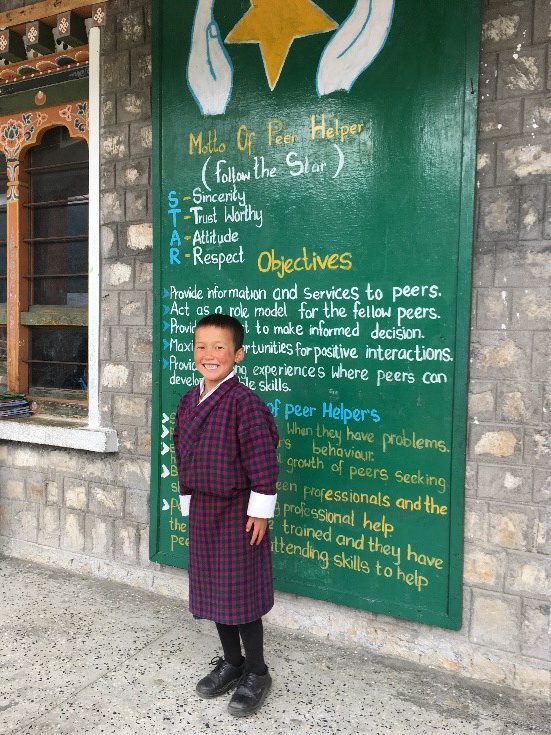 Motto Of Peer Helper
(Follow the Star)
S - Sincerity
T - Trust Worthy
A - Attitude
R - Respect
Objectives
Provide information and services to peers.
Act as a role model for the fellow peers.
to make informed decision.
for positive interactions.
experiences where peers can
skills.
of peer Helpers
When they have problems.
behaviour.
growth of peers seeking
professionals and the
professional help
trained and they have
attending skills to help